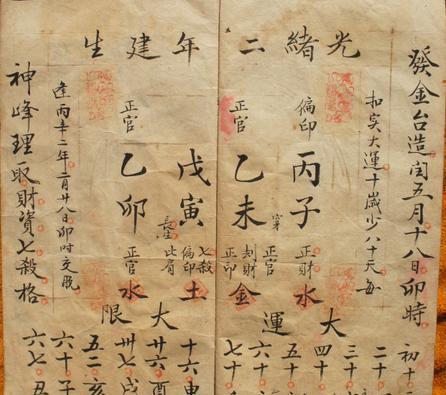 光緒二年建生
發金台造閏五月十八日卯時
扣实大運十歲少八十天每
偏印
丙子
正財
水
正官
乙未
正官
刦財
正印
金
戊寅
長生
七殺
偏印
比肩
土
正官
乙卯
正官
水
逢丙辛二年二月廿八日卯时交脱
神峰理取財資七殺格
大運
初十
二十
三十
四十
五十
六十
七十
大限
十六申
廿六酉
卅七戌
五二亥
六十子
六七丑